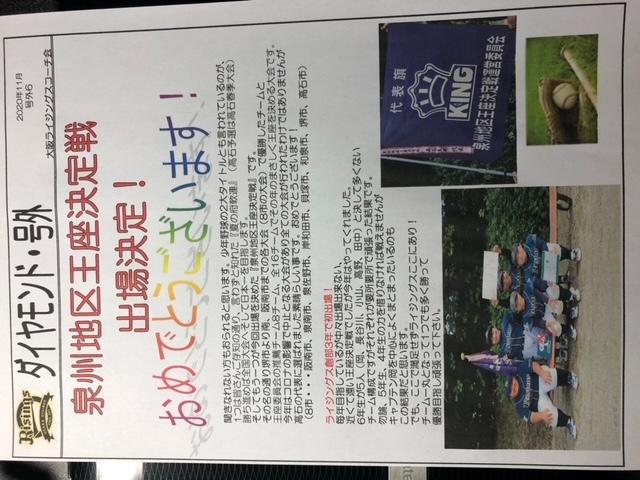 2020年11月
号外6
大阪ライジングスコーチ会
Risings
ダイヤモンド・号外
泉州地区王座決定戦
出場決定！
おめでとうございます！
聞きなれない方もおられると思います。少年野球の2大タイトルとも言われているのが、
1つは皆さんご存知の通り、言わずと知れた『夏の府軟連』（高石予選は高石春季大会）
勝ち進めば全国大会へそして日本一を目指します。
そしてもう一つが今回出場を決めた『泉州地区王座決定戦』です。
その名の通り堺市より南、阪南市までの各大会（8市の大会）で優勝したチームと
王座委員会の推薦チーム8チーム、全16チームでその年のまさしく王座を決める大会です。
今年はコロナの影響で中止となる大会があり全ての大会が行われたわけではありませんが
高石の代表に選ばれました素晴らしい事です。おめでとうございます！
（8市・・・阪南市、泉南市、泉佐野市、岸和田市、貝塚市、和泉市、堺市、高石市）
ライジングス創部3年で初出場！
毎年目指しているが中々出場出来ない、
近くて遠い王座決定戦でしたが今年はやってくれました。
6年生が5人（岡、長谷川、小山、高野、田中）と決して多くない
チーム構成ですがそれぞれが要所要所で頑張った結果です。
勿論、5年生、4年生の力を借りなければ戦えませんが
キャプテン岡をもとによくまとまったいるのも
この結果だと思います。
でも、ここで満足せずライジングスここにあり！
チーム一丸となって1つでも多く勝って
優勝目指し頑張って下さい。
代表旗
KING
泉州地区王座決定戦運営委員会